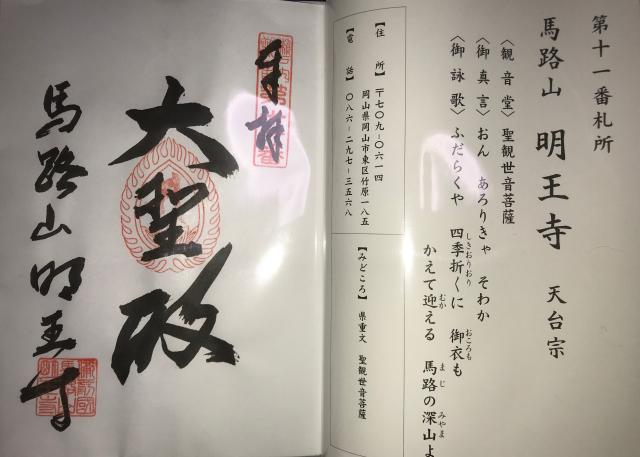 第十一番札所
馬路山 明王寺 天台宗
〈観音堂〉聖観世音菩薩
〈御真言〉おん あろりきゃ そわか
〈御詠歌〉ふだらくや 四季折くに 御衣も
しきおりおり
おころも
かえて迎える 馬路の深山よ
むか
まじ
みやま
【住所】 〒七〇九-〇六一四
岡山県岡山市東区竹原一八五
【電話】 〇八六-二九七-三五六八
【みどころ】 県重文 聖観世音菩薩
奉拝
大聖殿
馬路山明王寺